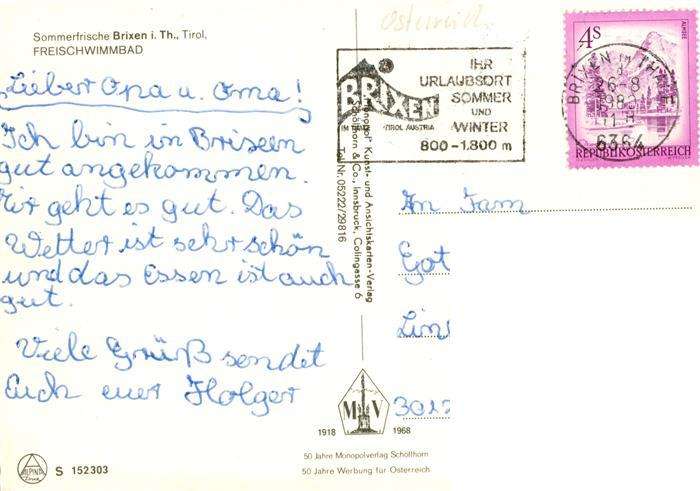 Sommerfrische Brixen i. Th., Tirol,
FREISCHWIMMBAD
Lieber Opa u. Oma!
Ich bin in Brixen
gut angekommen.
Mir geht es gut. Das
Wetter ist sehr schön
und das Essen ist auch
gut.
Viele Grüß sendet
Euch euer Holger
S 152303
Österreich
BRIXEN
IM THALE TIROL AUSTRIA
IHR
URLAUBSORT
SOMMER
UND
WINTER
800-1.800 m
4S
ALMSEE
REPUBLIK ÖSTERREICH
BRIXEN IM THALE
6364
Kunst- und Ansichtskarten-Verlag
& Co., Innsbruck, Colingasse 6
Tel. Nr. 05222/29816
An Fam
Got
Lin
M V
1918 1968
50 Jahre Monopolverlag Schöllhorn
50 Jahre Werbung für Österreich
ALPINA
Druck